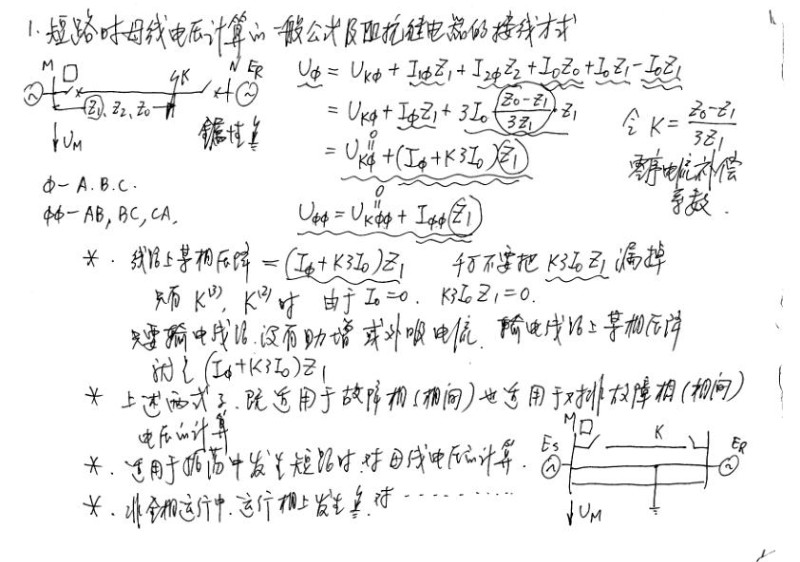 1. 短路时母线电压计算的一般公式及阻抗继电器的接线方式
M K N E_R
Z₁, Z₂, Z₀
U_M
Φ — A.B.C.
ΦΦ — AB, BC, CA.
U_Φ = U_KΦ + I_1ΦZ₁ + I_2ΦZ₂ + I₀Z₀ + I₀Z₁ − I₀Z₁
= U_KΦ + I_ΦZ₁ + 3I₀ (Z₀−Z₁)/(3Z₁) · Z₁
= U_KΦ + (I_Φ + K3I₀) Z₁
0
令 K = (Z₀−Z₁)/(3Z₁)
零序电流补偿
系数.
0
U_ΦΦ = U_KΦΦ + I_ΦΦ Z₁
*. 线路上某相压降 = (I_Φ + K3I₀)Z₁ 千万不要把 K3I₀Z₁ 漏掉
只有 K⁽³⁾, K⁽²⁾ 时 由于 I₀=0. K3I₀Z₁=0.
只要输电线路.没有助增或外吸电流. 输电线路上某相压降
就是 (I_Φ+K3I₀)Z₁
* 上述两式子.既适用于故障相(相间)也适用于对非故障相(相间)
电压的计算
*. 适用于振荡中发生短路时.对母线电压的计算.
*. 非全相运行中.运行相上发生 对 ·········
M K
E_S E_R
U_M